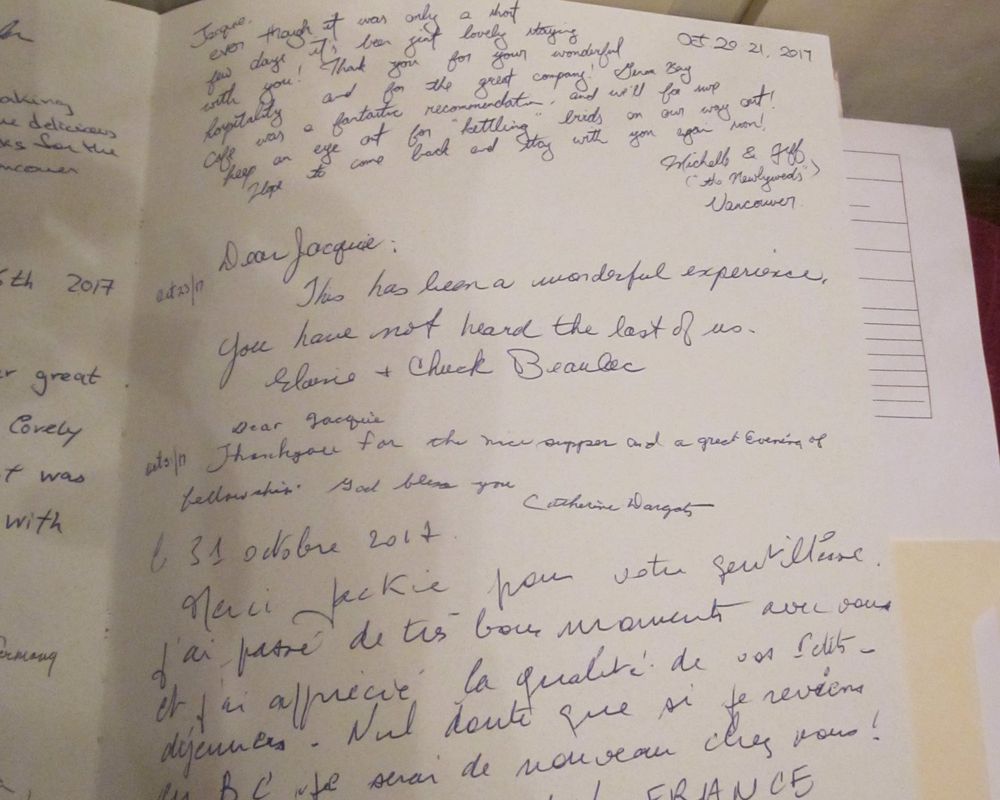 aking
delicious
ks for the
ncouver
6th 2017
r great
Lovely
t was
with
ermany
Oct 20 21, 2017
Jacquie,
even though it was only a short
few days it's been just lovely staying
with you! Thank you for your wonderful
hospitality and for the great company! Bay
Cafe was a fantastic recommendation, and we'll for sure
keep an eye out for "kettling" birds on our way out!
Hope to come back and stay with you again soon!
Michelle & Jeff
("the Newlyweds")
Vancouver
Dear Jacquie:
oct 23/17
This has been a wonderful experience.
You have not heard the last of us.
Elaine + Chuck
Dear Jacquie
Thankyou for the nice supper and a great Evening of
fellowship. God bless you
Catherine
le 31 octobre 2017.
Merci Jackie pour votre gentillesse.
j'ai passé de très bons moments avec vous
et j'ai apprécié la qualité de vos petits-
déjeuners. Nul doute que si je reviens
en BC je serai de nouveau chez vous!
FRANCE